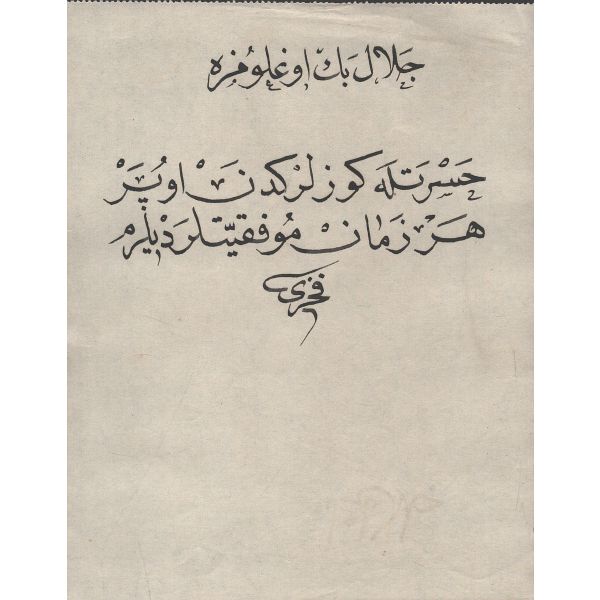 جلال بك اوغلومزه
حسرتله كوزلركدن اوپر
هر زمان موفقيتلر ديلرم
فخری